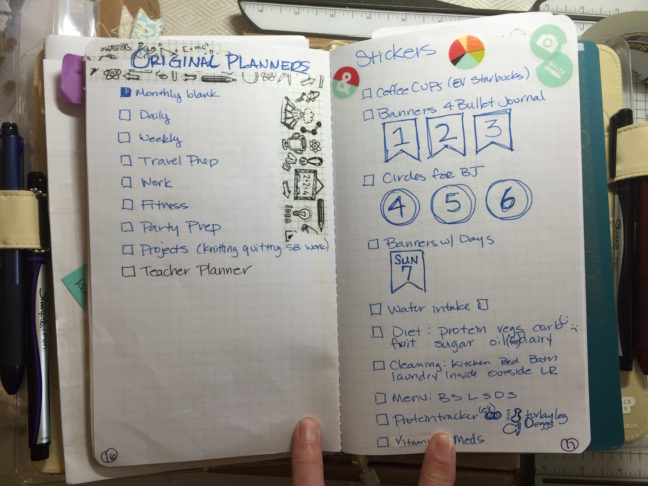 ORIGINAL PLANNERS
Monthly blank
Daily
Weekly
Travel Prep
Work
Fitness
Party Prep
Projects (knitting quilting SB work)
Teacher Planner
16
Stickers
&
Coffee Cups (EV Starbucks)
Banners 4 Bullet Journal
1 2 3
Circles for BJ
4 5 6
Banners w/ Days
SUN
7
Water intake
Diet: protein vegs carb
fruit sugar oil dairy
Cleaning: Kitchen Bed Bath
laundry inside outside LR
Menu: B S L S D S
Protein tracker turkey leg
eggs
Vitamin Meds
17